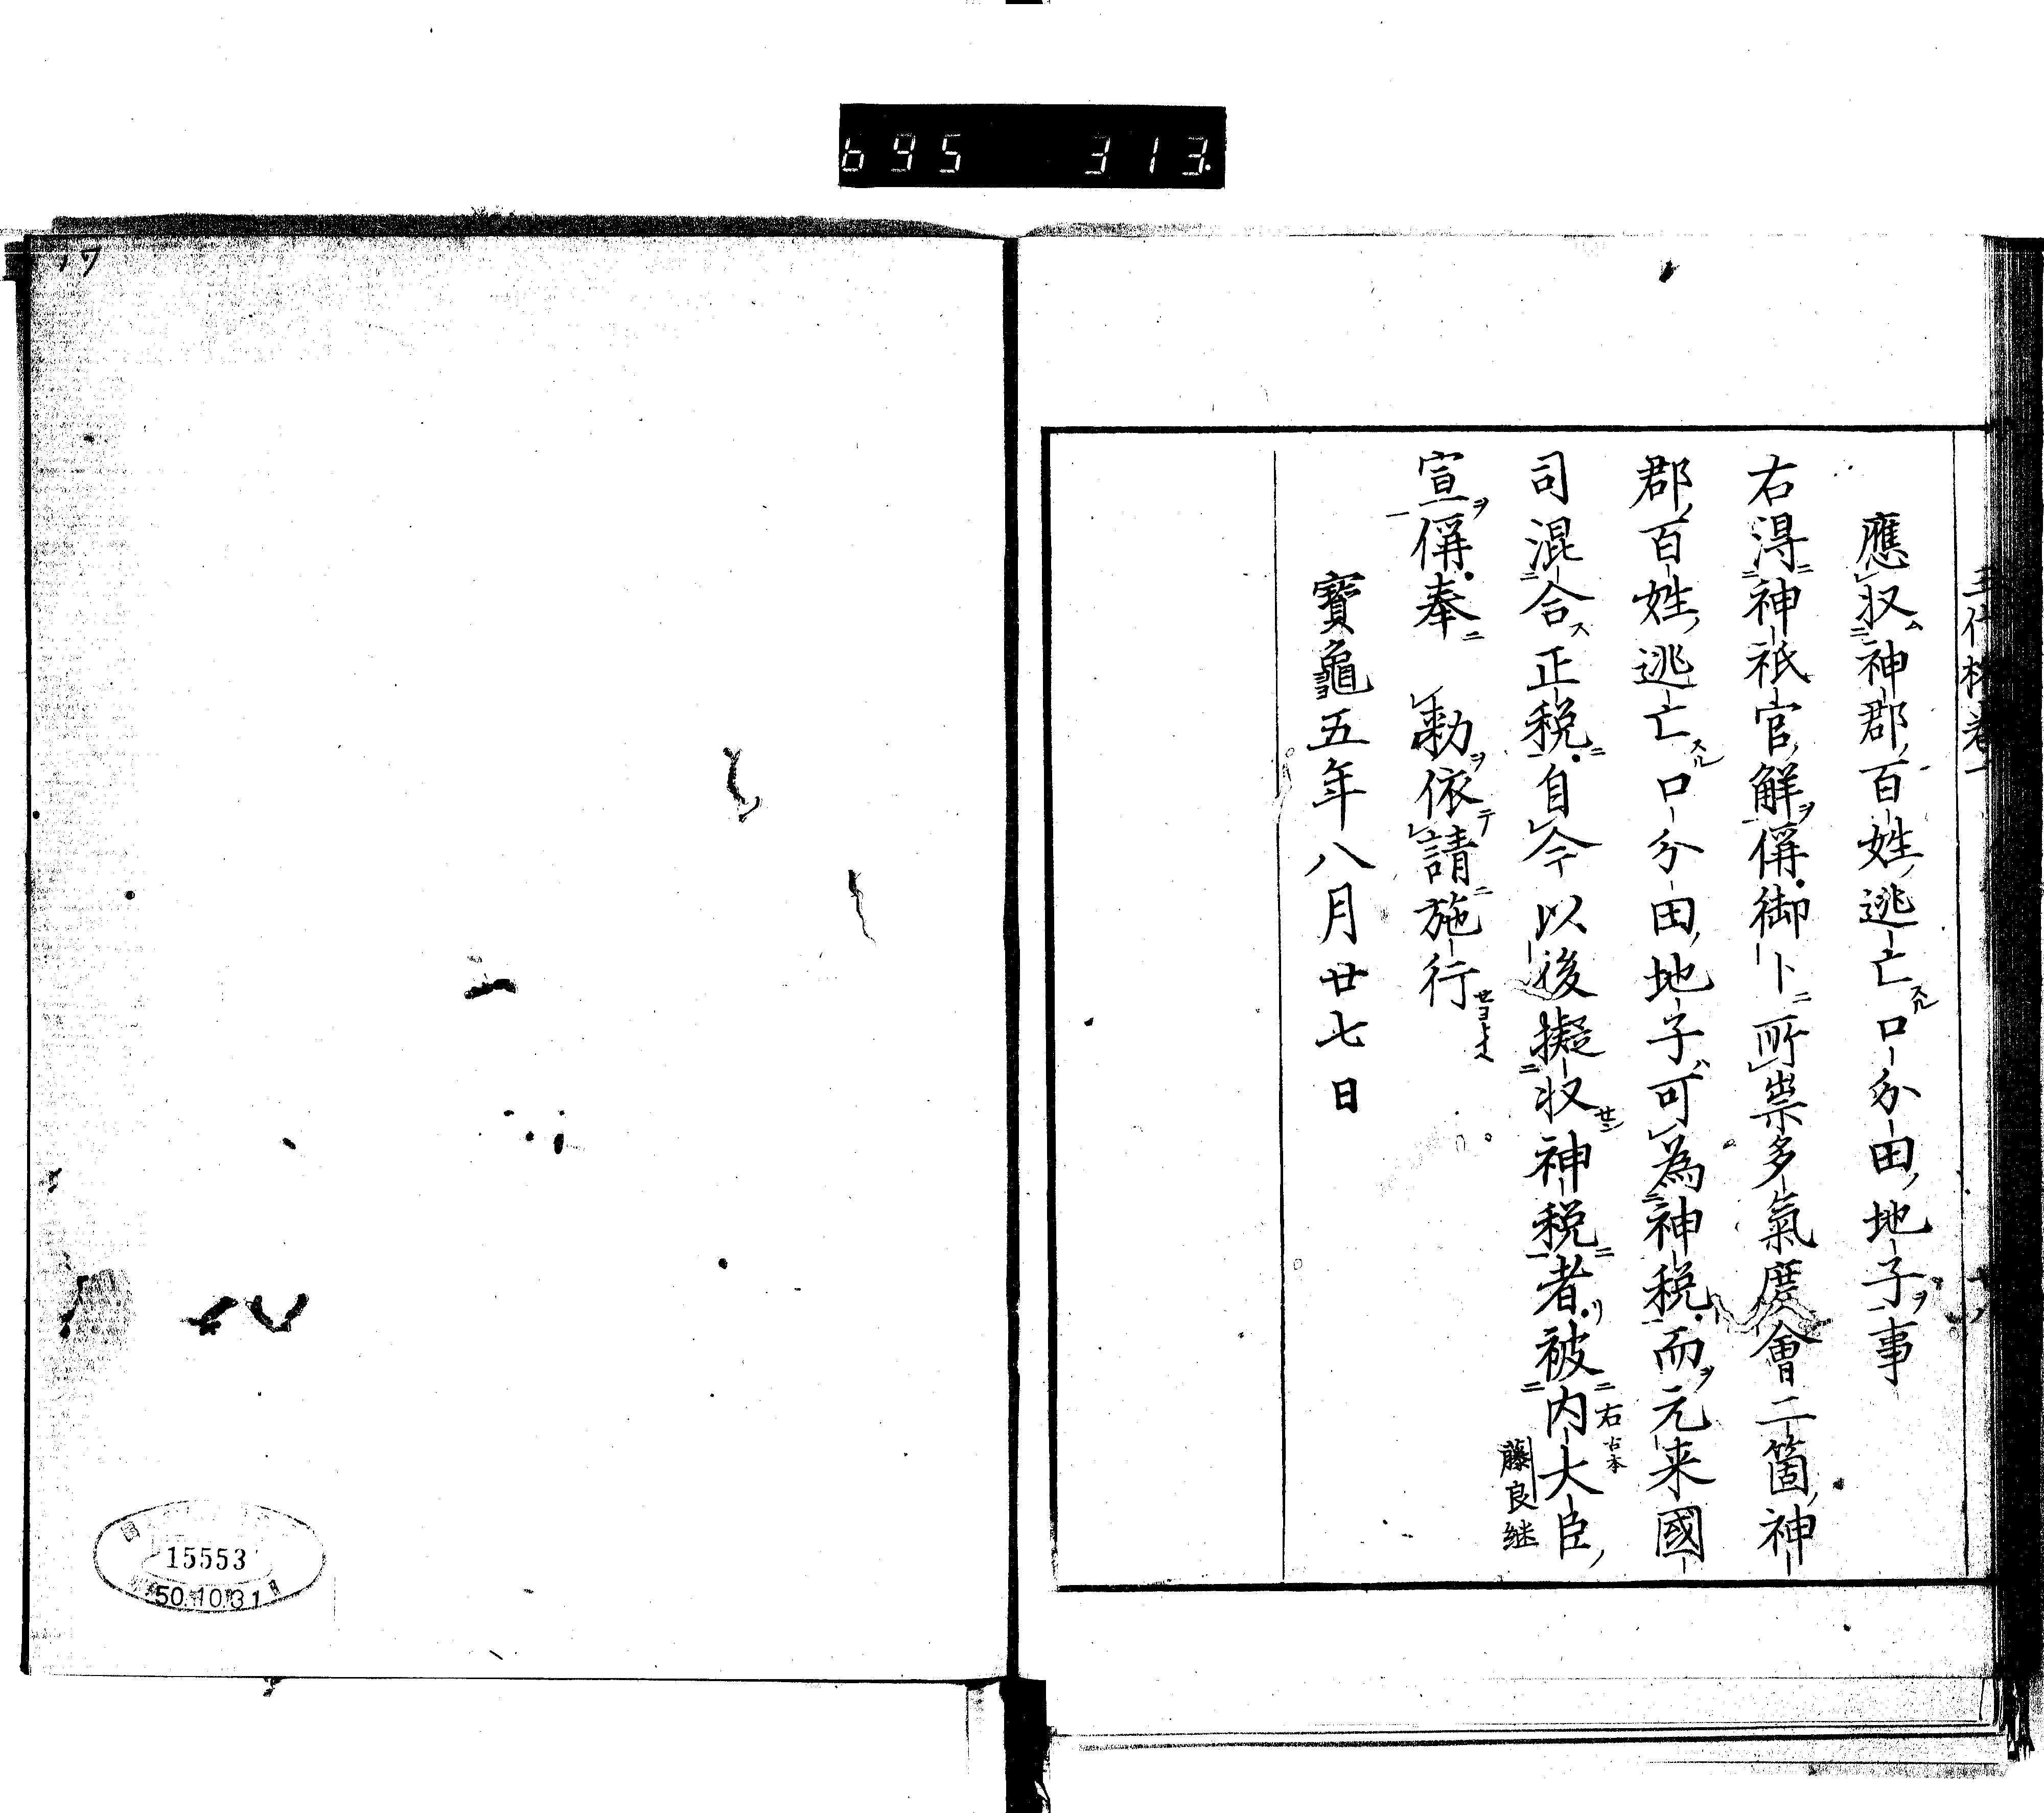 695 313
三代格巻一
應収神郡百姓逃亡口分田地子事
右得神祇官解偁御卜所崇多氣度會二箇神
郡百姓逃亡口分田地子可為神税而元来國
司混合正税自今以後擬収神税者被内大臣
右 古本
藤良継
宣偁奉 勅依請施行
寶龜五年八月廿七日
15553
50.10.31